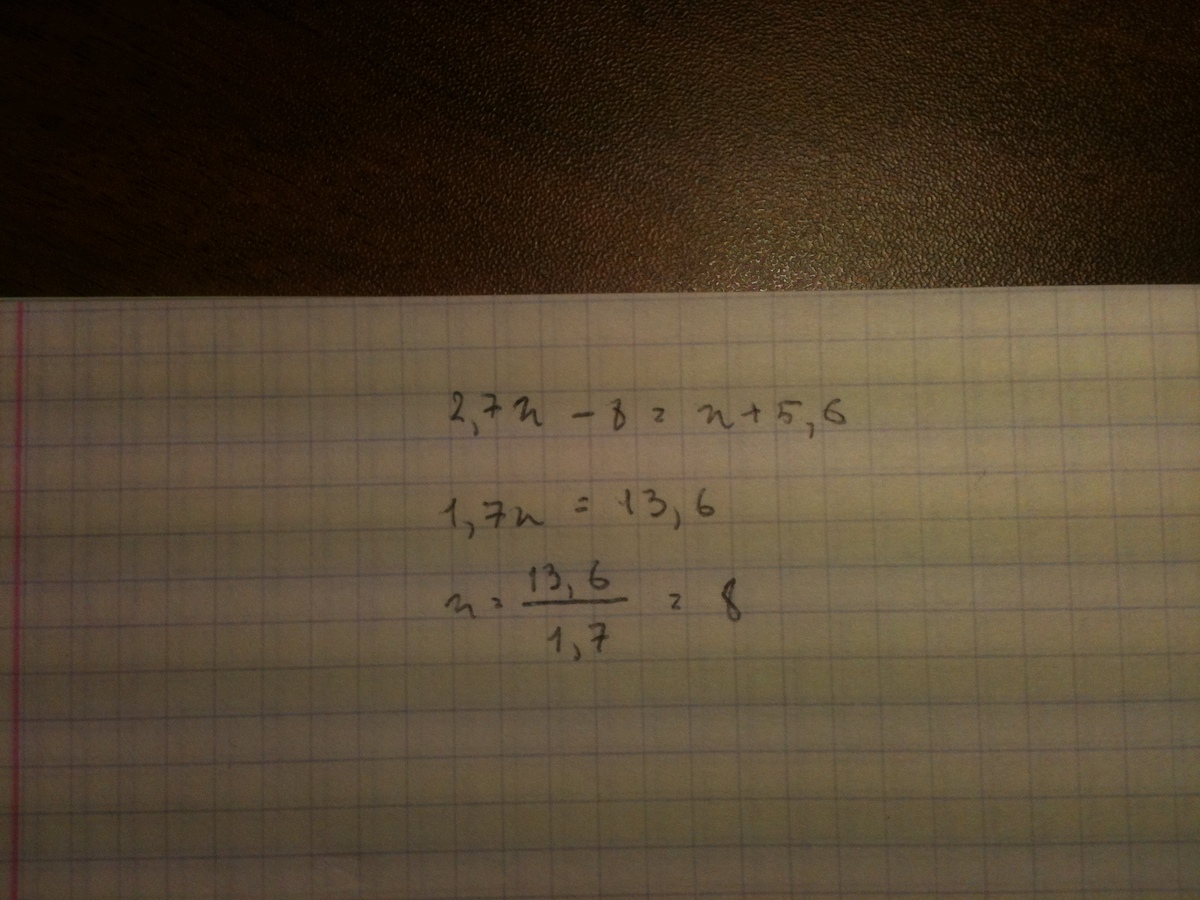 2,7x - 8 = x + 5,6
1,7x = 13,6
x = 13,6/1,7 = 8